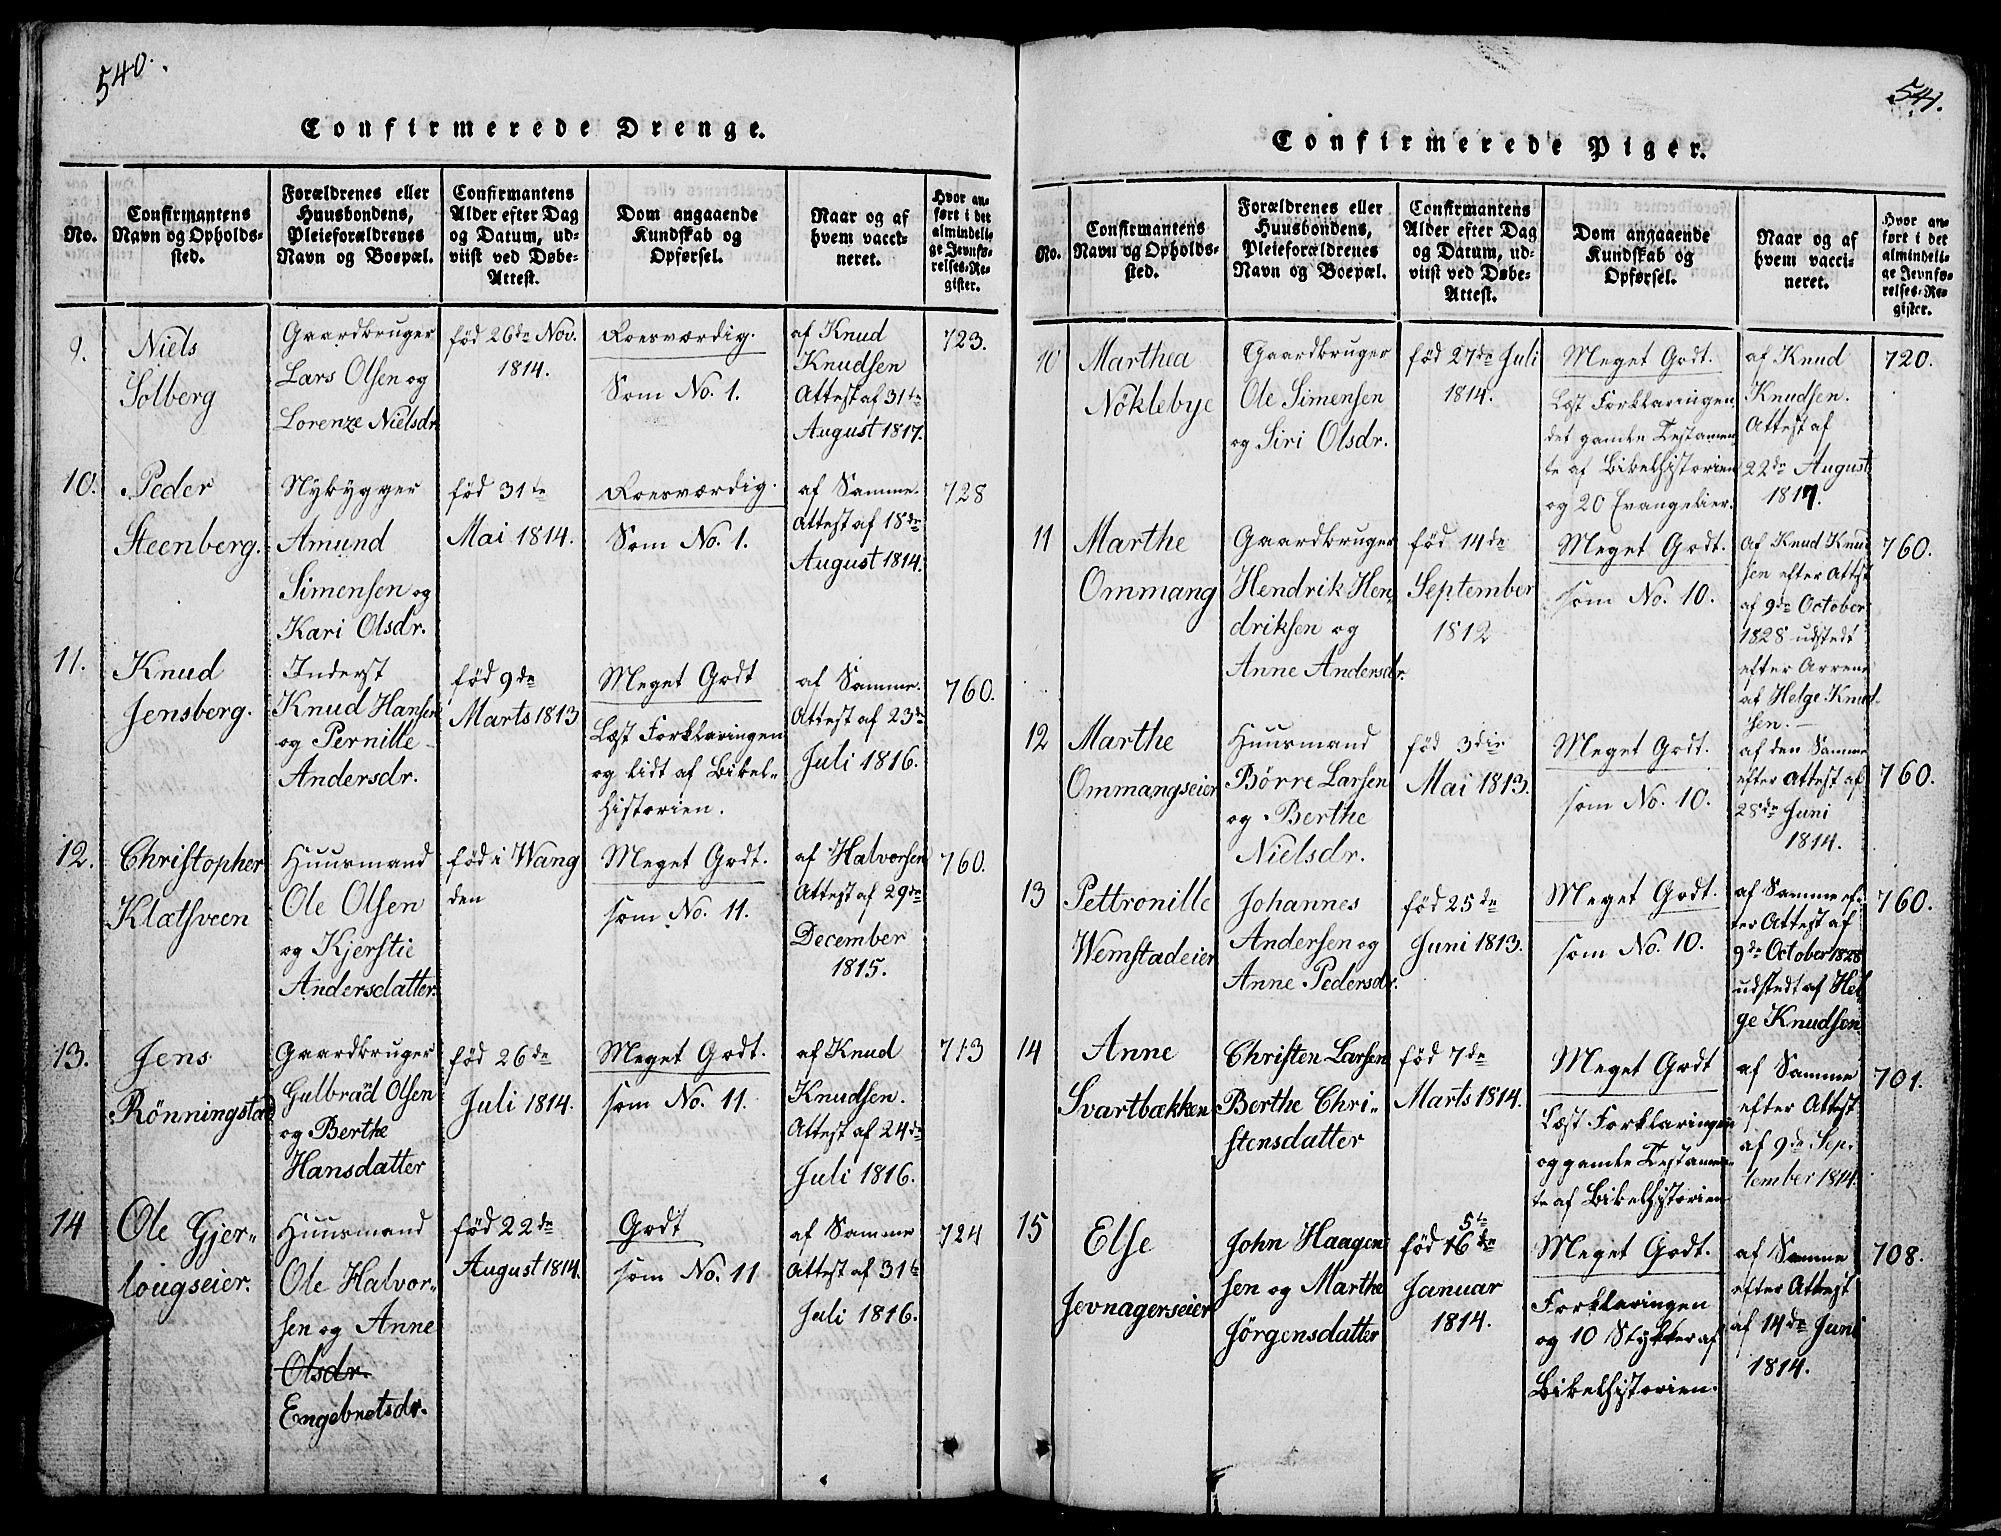 540.
Confirmerede Drenge.
No.
Confirmantens
Navn og Opholds-
sted.
Forældrenes eller
Huusbondens,
Pleieforældrenes
Navn og Boepæl.
Confirmantens
Alder efter Dag
og Datum, ud-
viist ved Døbe-
Attest.
Dom angaaende
Kundskab og
Opførsel.
Naar og af
hvem vacci-
neret.
Hvor an-
ført i det
almindeli-
ge Jevnfø-
relses-Re-
gister.
9.
Niels
Solberg
Gaardbruger
Lars Olsen og
Lorenze Nielsdr.
fød 26de Nov.
1814.
Roesværdig.
Som No. 1.
af Knud
Knudsen
Attest af 31te
August 1817.
723.
10.
Peder
Steenberg.
Nybygger
Amund
Simensen og
Kari Olsdr.
fød 31te
Mai 1814.
Roesværdig.
Som No. 1.
af Samme.
Attest af 18de
August 1814.
728
11.
Knud
Jensberg.
Inderst
Knud Hansen
og Pernille
Andersdr.
fød 9de
Marts 1813
Meget Godt
Læst Forklaringen
og lidt af Bibel-
historien.
af Samme.
Attest af 23de
Juli 1816.
760.
12.
Christopher
Klætsveen
Huusmand
Ole Olsen
og Kjerstie
Andersdatter.
fød i Wang
den
Meget Godt.
som No. 11.
af Halvorsen
Attest af 29de
December
1815.
760.
13.
Jens
Rönningstad
Gaardbruger
Gulbrad Olsen
og Berthe
Hansdatter
fød 26de
Juli 1814.
Meget Godt.
som No. 11.
af Knud
Knudsen.
Attest af 24de
Juli 1816.
713
14
Ole Gjer-
lougseier.
Huusmand
Ole Halvor-
sen og Anne
Olsdr.
Engebretsdr.
fød 22de
August 1814.
Godt
som No. 11
af Samme
Attest af 31te
Juli 1816.
724
541.
Confirmerede Piger.
No.
Confirmantens
Navn og Opholds-
sted.
Forældrenes eller
Huusbondens,
Pleieforældrenes
Navn og Boepæl.
Confirmantens
Alder efter Dag
og Datum, ud-
viist ved Døbe-
Attest.
Dom angaaende
Kundskab og
Opførsel.
Naar og af
hvem vacci-
neret.
Hvor an-
ført i det
almindeli-
ge Jevnfø-
relses-Re-
gister.
10
Marthea
Nöklebye
Gaardbruger
Ole Simensen
og Siri Olsdr.
fød 27de Juli
1814.
Meget Godt.
Læst Forklaringen,
det gamle Testamen
te af Bibelhistorien
og 20 Evangelier.
af Knud
Knudsen.
Attest af
22de August
1817.
720.
11
Marthe
Ommang
Gaardbruger
Hendrik Hen-
driksen og
Anne Andersdr.
fød 14de
September
1812
Meget Godt.
som No. 10.
af Knud Knud
sen efter Attest
af 9de October
1828 udstedt
efter
af Helge Knud-
sen.
760.
12
Marthe
Ommangseier
Huusmand
Börre Larsen
og Berthe
Nielsdr.
fød 3die
Mai 1813.
Meget Godt.
som No. 10.
af den Samme
efter Attest af
28de Juni
1814.
760.
13
Pettronille
Wemstadeier
Johannes
Andersen og
Anne Pedersdr.
fød 25de
Juni 1813.
Meget Godt.
som No. 10.
af Samme ef-
ter Attest af
9de October 1828
udstedt af Hel
ge Knudsen
760.
14
Anne
Svartbækken
Christen Larsen
Berthe Chri-
stensdatter
fød 7de
Marts 1814.
Meget Godt
Læst Forklaringen
og gamle Testamen-
te af Bibelhistorien
af Samme
efter Attest
af 9de Sep-
tember 1814.
701.
15
Else
Jevnagerseier
John Haagen
sen og Marthe
Jörgensdatter
5te
fød 16de
Januar
1814.
Meget Godt.
Forklaringen
og 10 Stykker af
Bibelhistorien.
af Samme
efter Attest
af 14de Juni
1814.
708.